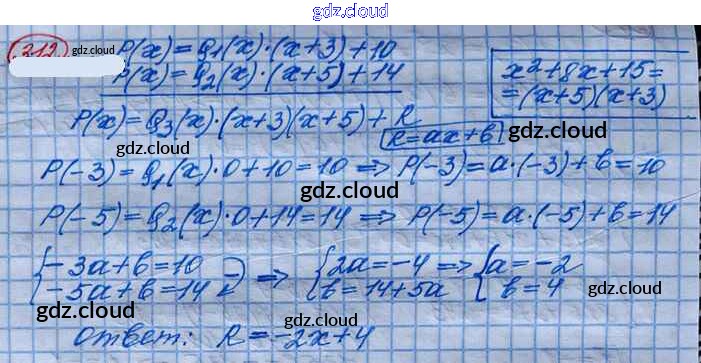 gdz.cloud
212 gdz.cloud P(x) = Q₁(x)·(x+3)+10
P(x) = Q₂(x)·(x+5)+14
x²+8x+15=
=(x+5)(x+3)
gdz.cloud
P(x) = Q₃(x)·(x+3)(x+5)+R
R=ax+b
gdz.cloud gdz.cloud
P(-3) = Q₁(x)·0+10=10 ⇒ P(-3)=a·(-3)+b=10
gdz.cloud
P(-5) = Q₂(x)·0+14=14 ⇒ P(-5)=a·(-5)+b=14
gdz.cloud gdz.cloud
{-3a+b=10 ⇒ {2a=-4 ⇒ {a=-2
-5a+b=14 b=14+5a b=4
gdz.cloud gdz.cloud
gdz.cloud
Ответ: R=-2x+4